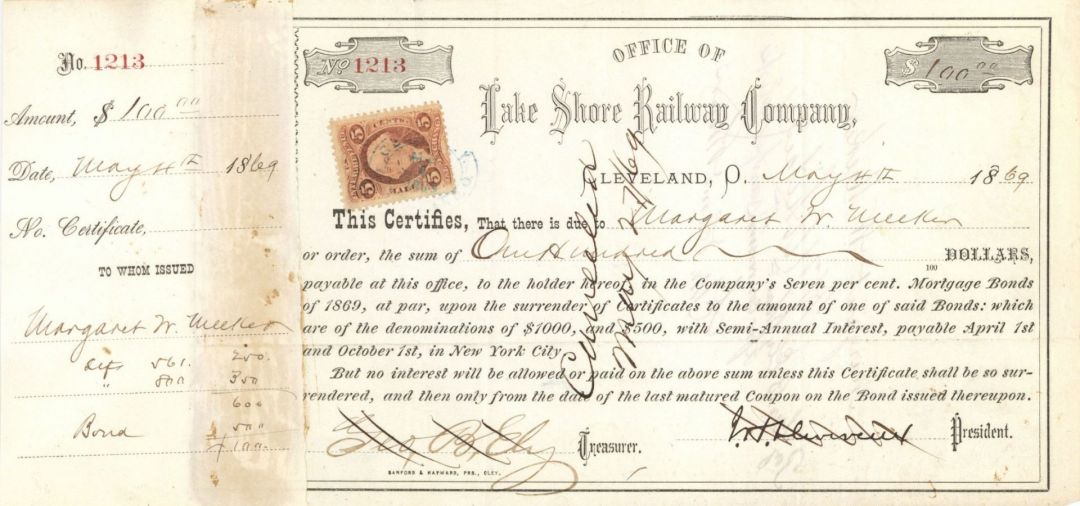 No. 1213
Amount, $ 100.00
Date, May 4th 1869
No. Certificate,
TO WHOM ISSUED
Margaret W. Meeker
561. 250.
" 800 350
600
Bond 500
100.
No 1213
OFFICE OF
$ 100.00
Lake Shore Railway Company,
5 CENTS 5
5 5
CLEVELAND, O. May 4th 1869
This Certifies, That there is due to Margaret W. Meeker
or order, the sum of One Hundred 100 DOLLARS,
payable at this office, to the holder hereof, in the Company's Seven per cent. Mortgage Bonds
of 1869, at par, upon the surrender of Certificates to the amount of one of said Bonds: which
are of the denominations of $1000, and $500, with Semi-Annual Interest, payable April 1st
and October 1st, in New York City.
But no interest will be allowed or paid on the above sum unless this Certificate shall be so sur-
rendered, and then only from the date of the last matured Coupon on the Bond issued thereupon.
Geo. B. Ely Treasurer. President.
SANFORD & HAYWARD, PRS., CLEV.
Cancelled
May 27/69